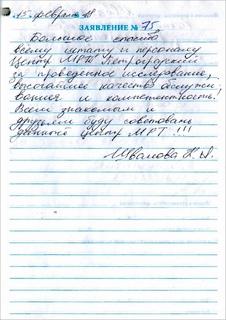 15 февраля 18
ЗАЯВЛЕНИЕ № 75
Большое спасибо
всему штату и персоналу
Центр МРТ Петроградский
за проведенное исследование,
высочайшее качество обслужи
вания и компетентность.
Всем знакомым и
друзьям буду советовать
данный центр МРТ!!!
Иванова Н.А.